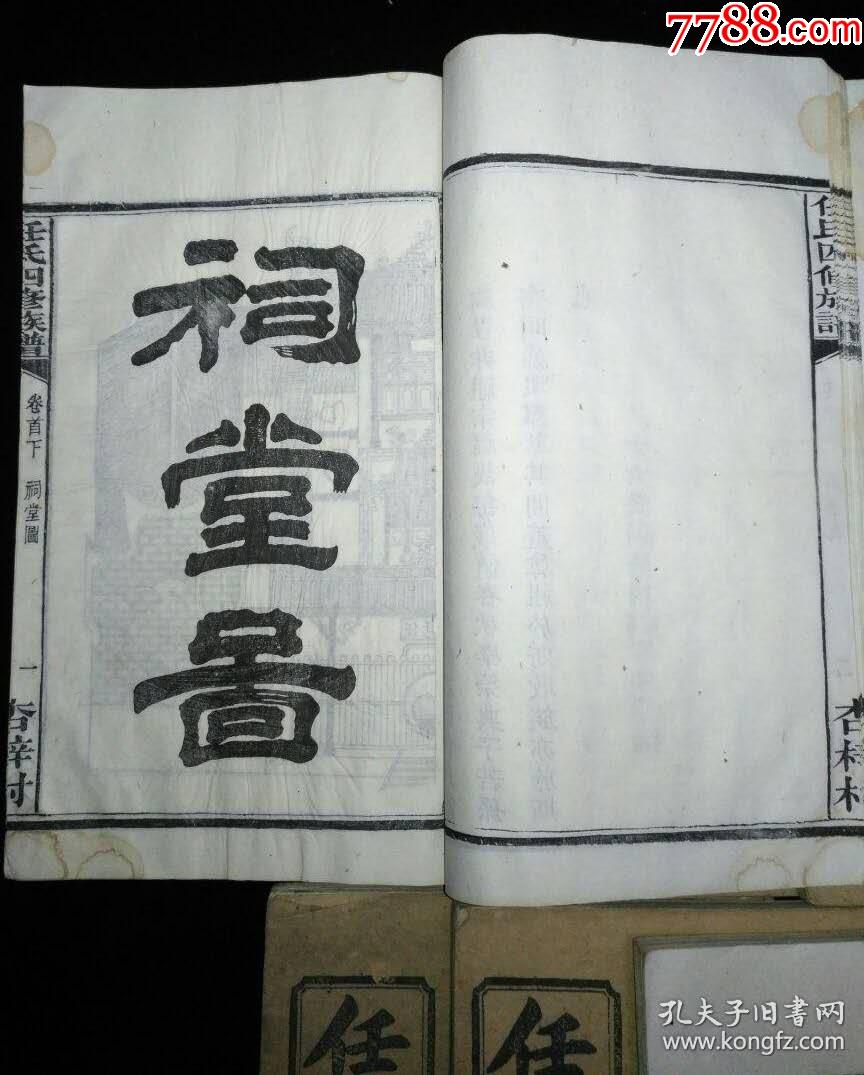 7788.com
任氏四修族譜
卷首下
祠堂圖
一
杏梓村
祠
堂
啚
任氏四修族譜
杏梓村
任
任
孔夫子旧书网
www.kongfz.com